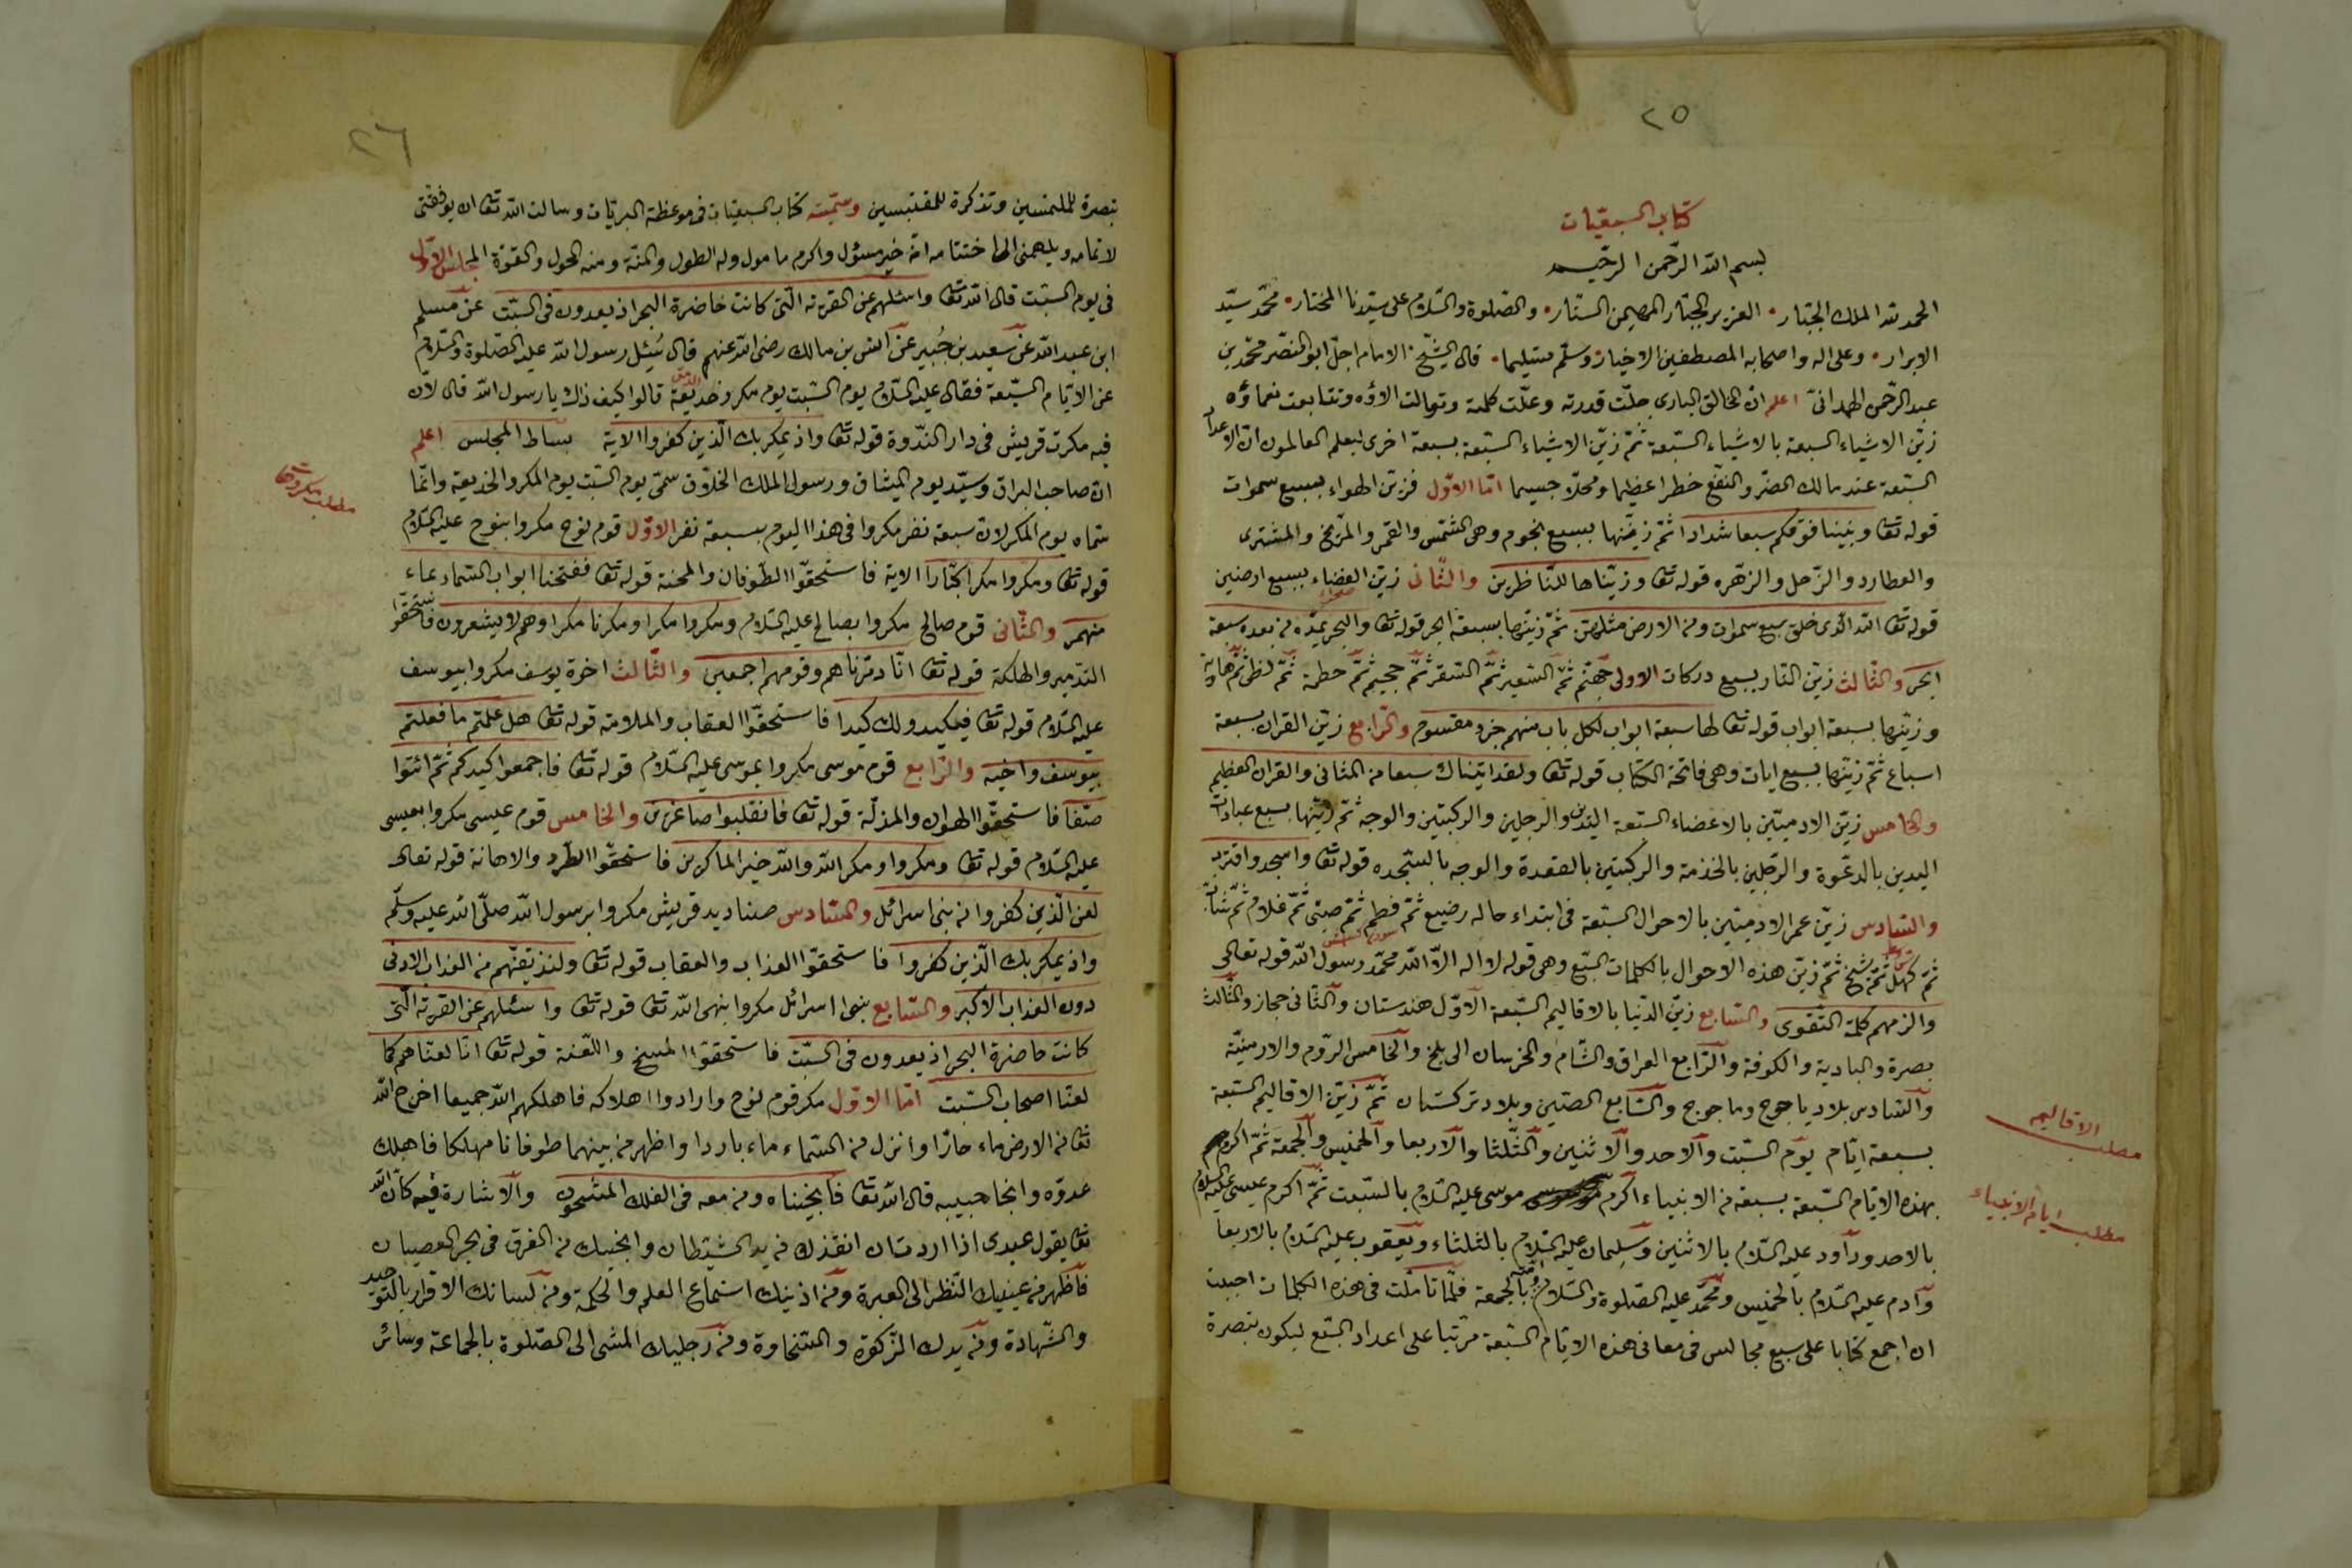 ٢٥
كتاب السبعيّات
بسم الله الرّحمن الرّحيم
الحمد لله الملك الجبّار • العزيز الجبّار المهيمن السّتار • والصّلوة والسّلام على سيّدنا المختار • محمّد سيّد
الابرار • وعلى اله واصحابه المصطفين الاخيار وسلّم تسليما • قال الشيخ الامام اجلّ ابو النصّر محمّد بن
عبد الرّحمن الهمدانىّ اعلم انّ الخالق البارى جلّت قدرته وعلّت كلمته وتوالت الاؤه وتتابعت نعماؤه
زيّن الاشياء السبعة بالاشياء السّبعة ثمّ زيّن الاشياء السّبعة بسبعة اخرى ليعلم العالمون انّ الاعداد
السّبعة عند مالك الضرّ والنفع خطرا عظيما ومحلّا جسيما امّا الاوّل فزيّن الهواء بسبع سموات
قوله تعا وبنينا فوقكم سبعا شدادا ثمّ زيّنها بسبع نجوم وهى الشّمس والقمر والمرّيخ والمشترى
والعطارد والزّحل والزهّره قوله تعا وزيّناها للنّاظرين والثّانى زيّن الفضاء بسبع ارضين
قوله تعا الله الّذى خلق سبع سموات ومن الارض مثلهنّ ثمّ زيّنها بسبعة ابحر قوله تعا والبحر يمدّه من بعده سبعة
ابحر والثّالث زيّن النّار بسبع دركات الاولى جهنّم ثمّ السّعير ثمّ السّقر ثمّ جحيم ثمّ حطمة ثمّ لظى ثمّ هاوية
وزيّنها بسبعة ابواب قوله تعا لها سبعة ابواب لكل باب منهم جزء مقسوم والرّابع زيّن القران بسبعة
اسباع ثمّ زيّنها بسبع ايات وهى فاتحة الكتاب قوله تعا ولقد اتيناك سبعا من المثانى والقران العظيم
والخامس زيّن الادميّين بالاعضاء السّبعة اليدين والرجلين والركبتين والوجه ثمّ زيّنها بسبع عبادات
اليدين بالدعّوة والرّجلين بالخدمة والركبتين بالقعدة والوجه بالسّجده قوله تعا واسجد واقترب
والسّادس زيّن عمر الادميّين بالاحوال السّبعة فى ابتداء حاله رضيع ثمّ فطيم ثمّ صبّى ثمّ غلام ثمّ شابّ
ثمّ كهل ثمّ شيخ ثمّ زيّن هذه الاحوال بالكلمات السّبع وهى قوله لا اله الّا الله محمّد رسول الله قوله تعالى
والزمهم كلمة التّقوى والسّابع زيّن الدّنيا بالاقاليم السّبعة الاوّل هندستان والثّانى حجاز والثّالث
بصرة والبادية والكوفة والرّابع العراق والشّام والخرسان الى بلخ والخامس الرّوم والارمنيّة
والسّادس بلاد ياجوج وماجوج والسّابع الصّين وبلاد تركستان ثمّ زيّن الاقاليم السّبعة
بسبعة ايّام يوم السّبت والاحد والاثنين والثّلثا والاربعا والخميس والجمعة ثمّ اكرم
بهذه الايّام السّبعة بسبعة من الانبياء اكرم موسى عليه السّلام بالسّبت ثمّ اكرم عيسى عليه السّلام
بالاحد ودآود عليه السّلام بالاثنين وسليمان عليه السّلام بالثلثاء ويعقوب عليه السّلام بالاربعا
وآدم عليه السّلام بالخميس ومحمّد عليه الصّلوة والسّلام بالجمعة فلمّا تأمّلت فى هذه الكلمات احببت
ان اجمع كتابا على سبع مجالس فى معانى هذه الايّام السّبعة مرتّبا على اعداد السّبع ليكون تبصرة
مطلب الاقاليم
مطلب ايّام الانبياء
٢٦
تبصرة للملتمسين وتذكرة للمقتبسين وسمّيته كتاب السبعيّات فى موعظة البريّات وسالت الله تعا ان يوفقنى
لاتمامه ويلهمنى الى اختتامه انّه خير مسؤل واكرم مامول وله الطول والمنّة ومنه الحول والقوّة المجلس الاوّل
فى يوم السّبت قال الله تعا واسئلهم عن القرية الّتى كانت حاضرة البحر اذ يعدون فى السّبت عن مسلم
ابن عبد الله عن سعيد بن جُبير عن انس بن مالك رضى الله عنهم قال سُئل رسول الله عليه الصّلوة والسّلام
عن الايّام السّبعة فقال عليه السّلام يوم السّبت يوم مكر وخديعة قالوا كيف ذلك يا رسول الله قال لانّ
فيه مكرت قريش فى دار النّدوة قوله تعا واذ يمكر بك الّذين كفروا الاية بساط المجلس اعلم
انّ صاحب البراق وسيّد يوم الميثاق ورسول الملك الخلّاق سمّى يوم السّبت يوم المكر والخديعة وانّما
سمّاه يوم المكر لانّ سبعة نفر مكروا فى هذا اليوم بسبعة نفر الاوّل قوم نوح مكروا بنوح عليه السّلام
قوله تعا ومكروا مكرا كبّارا الاية فاستحقّوا الطّوفان والمحنة قوله تعا ففتحنا ابواب السّماء بماء
منهمر والثّانى قوم صالح مكروا بصالح عليه السّلام ومكروا مكرا ومكرنا مكرا وهم لا يشعرون فاستحقّوا
التدمير والهلكة قوله تعا انّا دمّرناهم وقومهم اجمعين والثّالث اخوة يوسف مكروا بيوسف
عليه السّلام قوله تعا فيكيدوا لك كيدا فاستحقّوا العقاب والملامة قوله تعا هل علمتم ما فعلتم
بيوسف واخيه والرّابع قوم موسى مكروا بموسى عليه السّلام قوله تعا فاجمعوا كيدكم ثمّ ائتوا
صفّا فاستحقّوا الهوان والمذلّة قوله تعا فانقلبوا صاغرين والخامس قوم عيسى مكروا بعيسى
عليه السّلام قوله تعا ومكروا ومكر الله والله خير الماكرين فاستحقّوا الطّرد والاهانة قوله تعالى
لعن الّذين كفروا من بنى اسرائل والسّادس صناديد قريش مكروا برسول الله صلّى الله عليه وسلّم
واذ يمكر بك الّذين كفروا فاستحقّوا العذاب والعقاب قوله تعا ولنذيقنّهم من العذاب الادنى
دون العذاب الاكبر والسّابع بنى اسرائل مكروا بنهى الله تعا قوله تعا واسئلهم عن القرية الّتى
كانت حاضرة البحر اذ يعدون فى السّبت فاستحقّوا المسخ واللّعنة قوله تعا انّا لعنّاهم كما
لعنّا اصحاب السّبت امّا الاوّل مكر قوم نوح وارادوا اهلاكه فاهلكهم الله جميعا اخرج الله
تعا من الارض ماء حارّا وانزل من السّماء ماء باردا واظهر من بينهما طوفانا مهلكا فاهلك
عدوّه وانجا حبيبه قال الله تعا فانجيناه ومن معه فى الفلك المشحون والاشارة فيه كانّ الله
تعا يقول عبدى اذا اردت ان انقذك من يد الشّيطان وانجيك من الغرق فى بحر العصيان
فاظهر من عينيك النّظر الى العبرة ومن اذنيك استماع العلم والحكمة ومن لسانك الاقرار بالتّوحيد
والشّهادة ومن يدك الزّكوة والسّخاوة ومن رجليك المشى الى الصّلوة بالجماعة وسائر